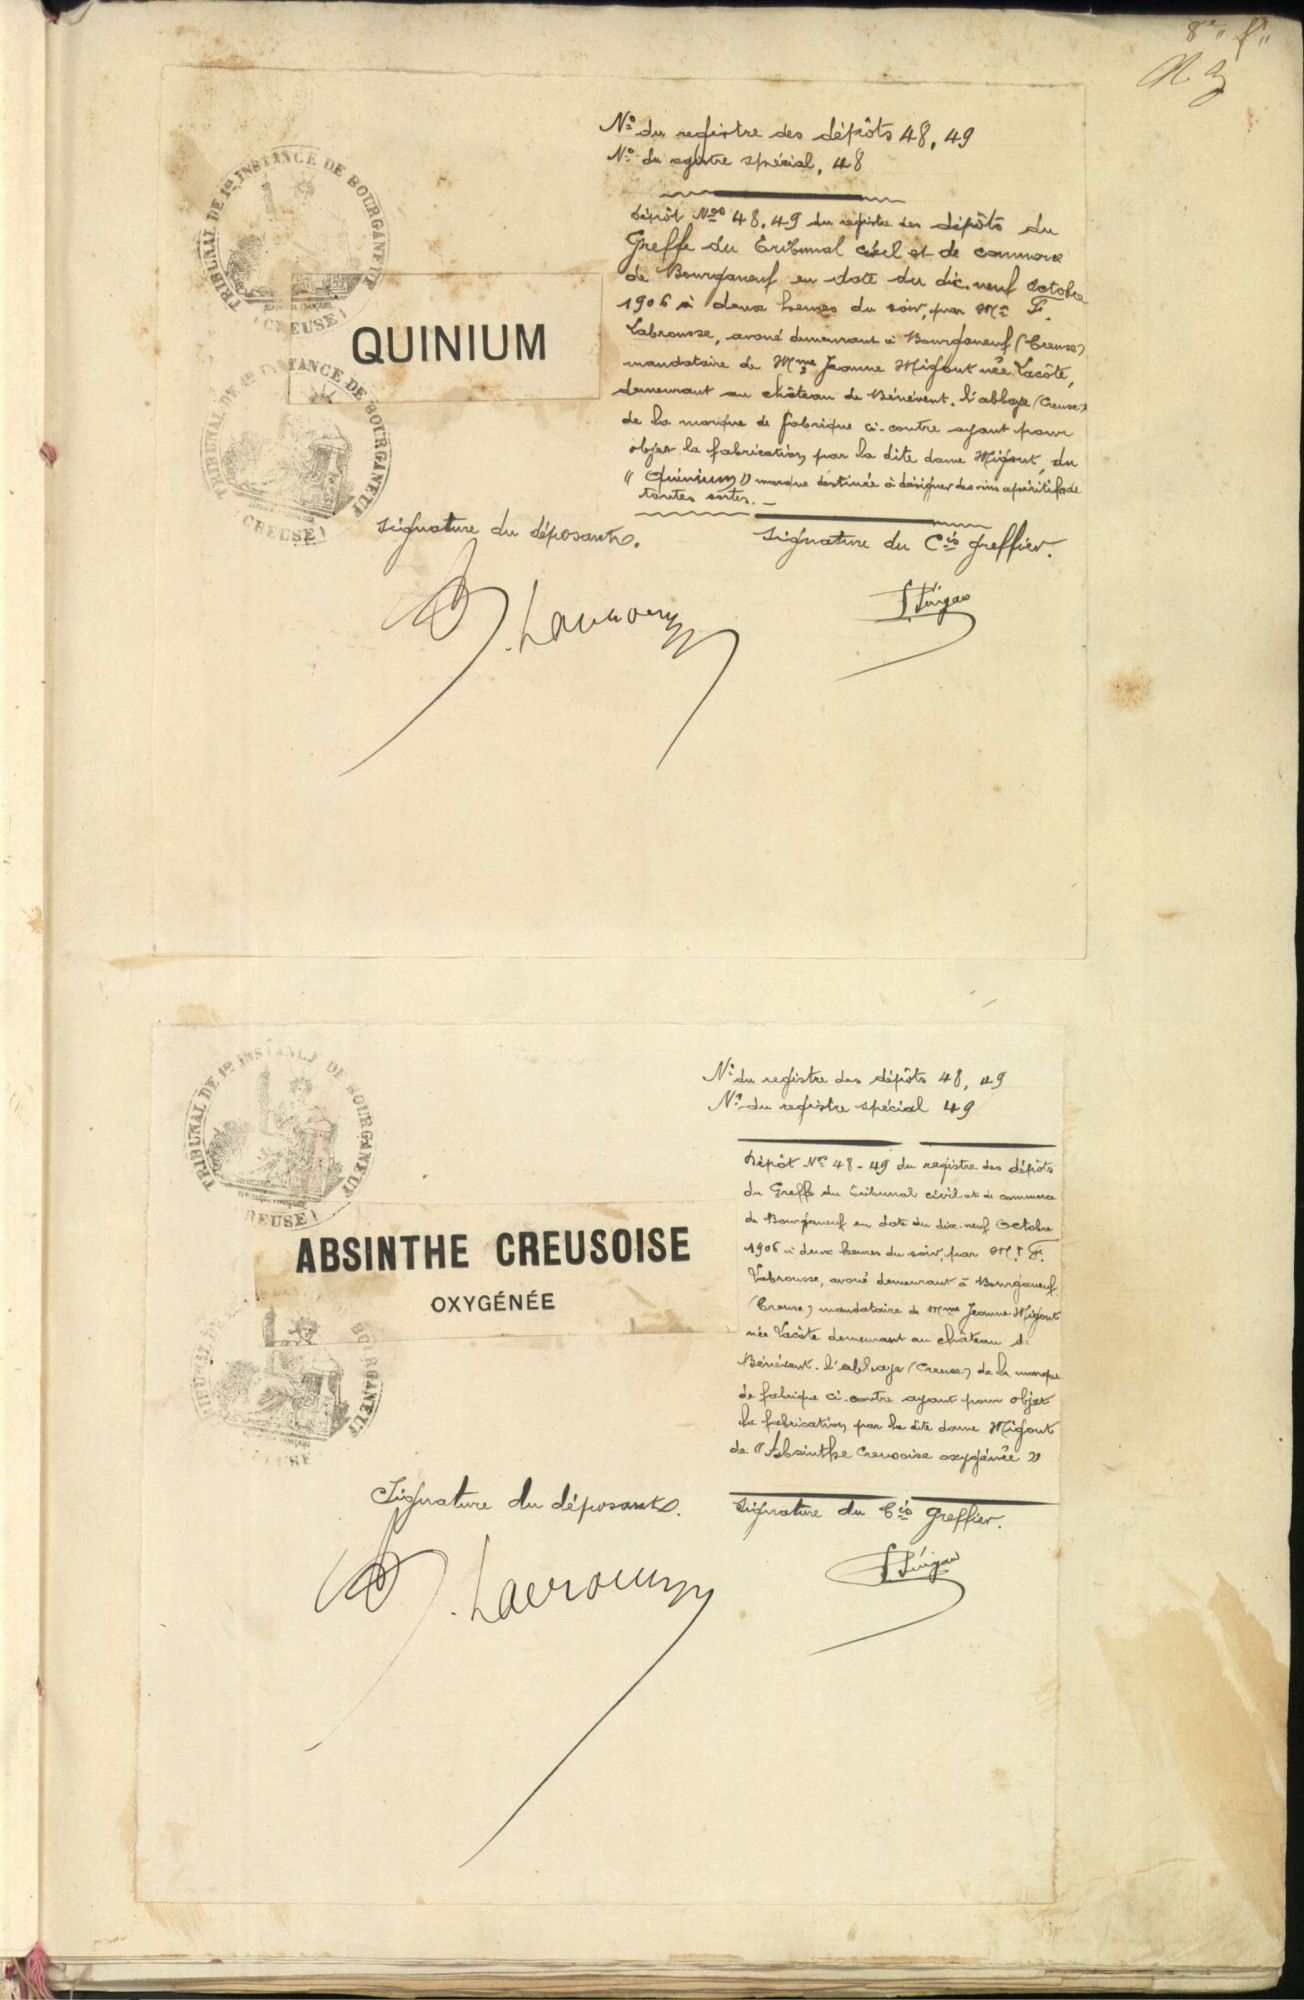 8e f
N°. du registre des dépôts 48, 49
N°. du registre spécial, 48
TRIBUNAL DE 1re INSTANCE DE BOURGANEUF
(CREUSE)
QUINIUM
TRIBUNAL DE 1re INSTANCE DE BOURGANEUF
(CREUSE)
Dépôt Nos 48.49 du registre des dépôts du
Greffe du Tribunal civil et de commerce
de Bourganeuf en date du dix-neuf octobre
1906 à deux heures du soir, par Me F.
Labrousse, avoué demeurant à Bourganeuf (Creuse)
mandataire de Mme Jeanne Migout née Lacôte,
demeurant au château de Bénévent-l'abbaye (Creuse)
de la marque de fabrique ci-contre ayant pour
objet la fabrication, par la dite dame Migout, du
"Quinium" marque destinée à désigner des vins apéritifs de
toutes sortes. —
Signature du déposant.
Signature du Cis greffier.
N°. du registre des dépôts 48, 49
N°. du registre spécial 49
TRIBUNAL DE 1re INSTANCE DE BOURGANEUF
(CREUSE)
ABSINTHE CREUSOISE
OXYGÉNÉE
Dépôt Nos 48-49 du registre des dépôts
du Greffe du Tribunal civil et de commerce
de Bourganeuf en date du dix-neuf Octobre
1906 à deux heures du soir, par Me F.
Labrousse, avoué demeurant à Bourganeuf
(Creuse) mandataire de Mme Jeanne Migout
née Lacôte demeurant au château de
Bénévent-l'abbaye (Creuse) de la marque
de fabrique ci-contre ayant pour objet
la fabrication, par la dite dame Migout
de "Absinthe Creusoise oxygénée"
Signature du déposant.
Signature du Cis greffier.